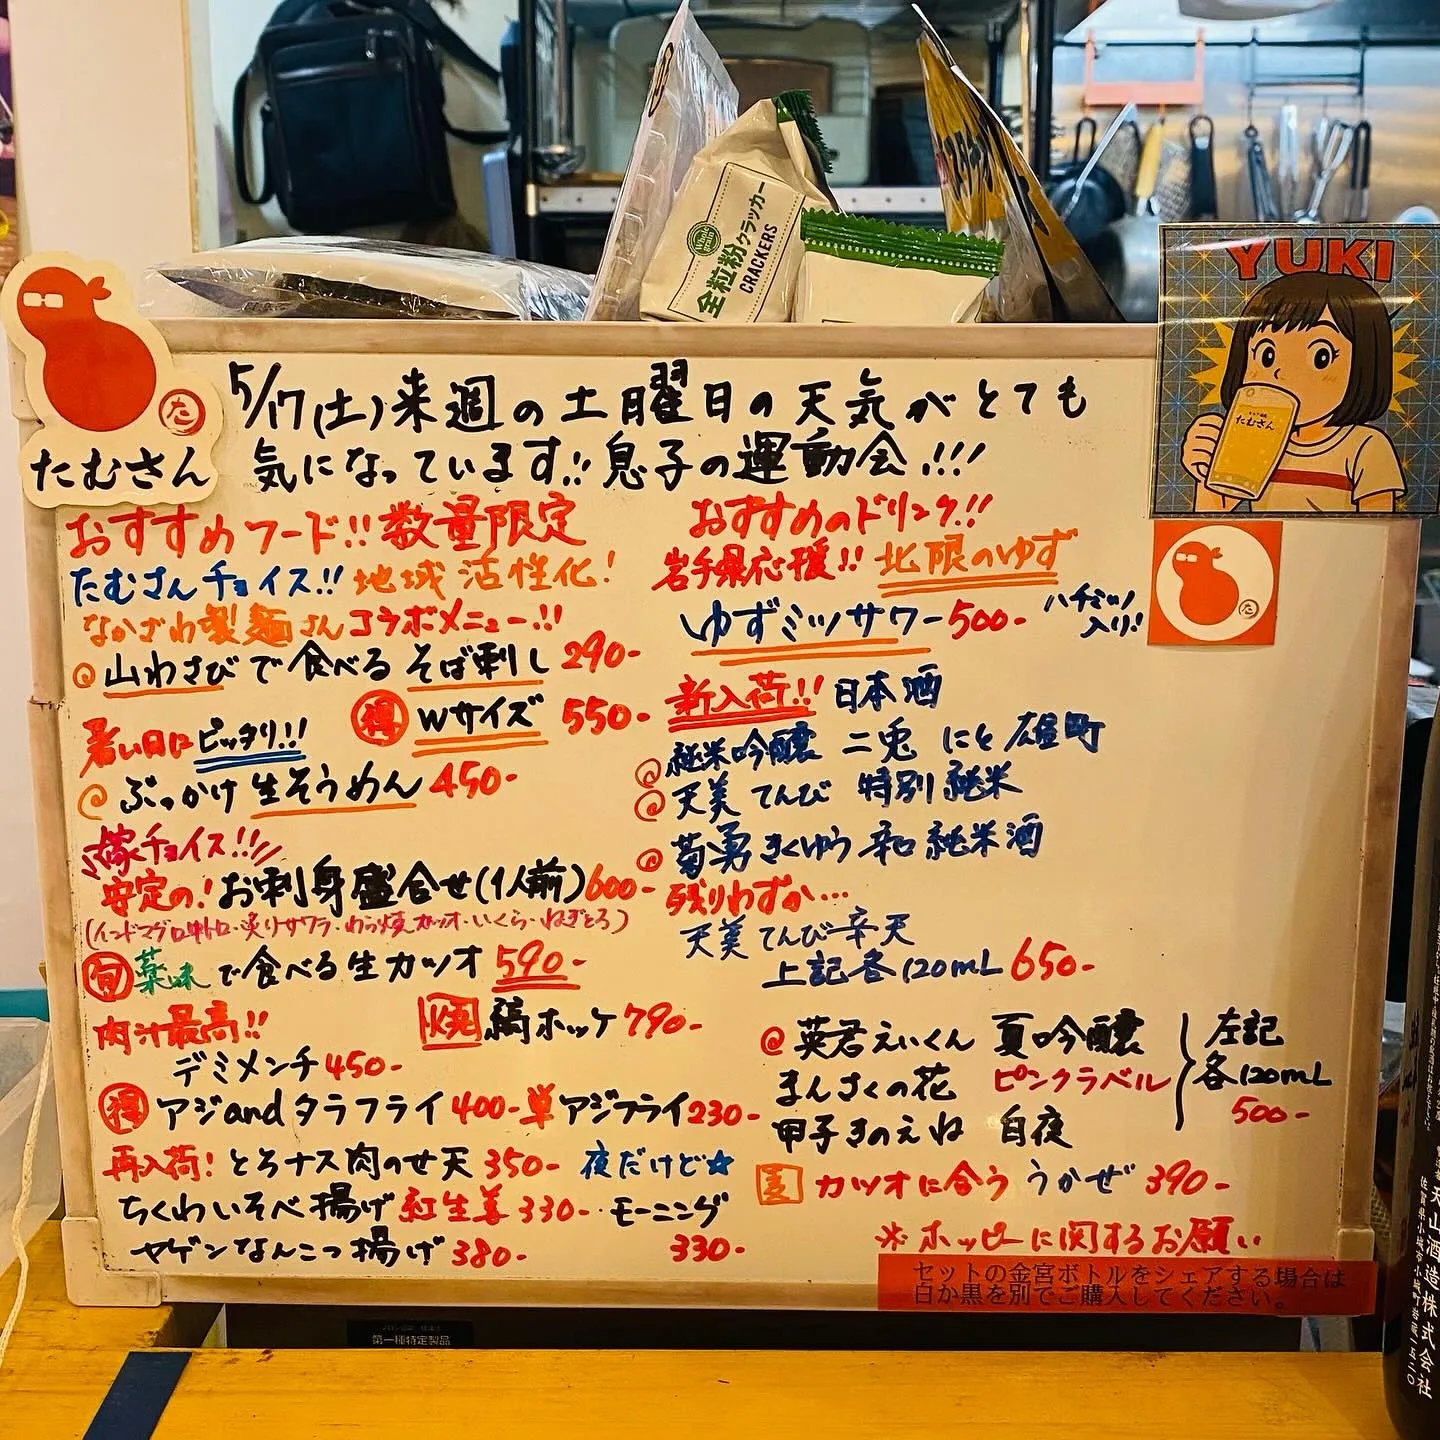 全粒粉クラッカー
CRACKERS
YUKI
たむさん
た
たむさん
5/17(土)来週の土曜日の天気がとても
気になっています!!息子の運動会!!!
おすすめフード!!数量限定
たむさんチョイス!!地域活性化!
なかざわ製麺さんコラボメニュー!!
山わさびで食べるそば刺し 290-
得 Wサイズ 550-
暑い日にピッタリ!!
ぶっかけ生そうめん 450-
嫁チョイス!!!
安定の!お刺身盛合せ(1人前)600-
(インドマグロ中トロ・炙りサワラ・わら焼カツオ・いくら・ねぎとろ)
旬 薬味で食べる生カツオ 590-
肉汁最高!!
焼 縞ホッケ 790-
デミメンチ 450-
得 アジandタラフライ 400- 単 アジフライ 230-
再入荷!とろナス肉のせ天 350- 夜だけど☆
ちくわいそべ揚げ 紅生姜 330- モーニング
ヤゲンなんこつ揚げ 380- 330-
おすすめのドリンク!!
岩手県応援!!北限のゆず
ゆずミツサワー 500- ハチミツ
入り!
新入荷!!日本酒
純米吟醸 二兎 にと 雄町
天美 てんび 特別純米
菊勇 きくゆう 辛口 純米酒
残りわずか…
天美 てんび 辛天
上記各120mL 650-
英君 えいくん 夏吟醸
まんさくの花 ピンクラベル
甲子 きのえね 白夜
左記
各120mL
500-
麦 カツオに合う うかぜ 390-
※ホッピーに関するお願い
セットの金宮ボトルをシェアする場合は
白か黒を別でご購入してください。
第一種特定製品
天山酒造株式会社